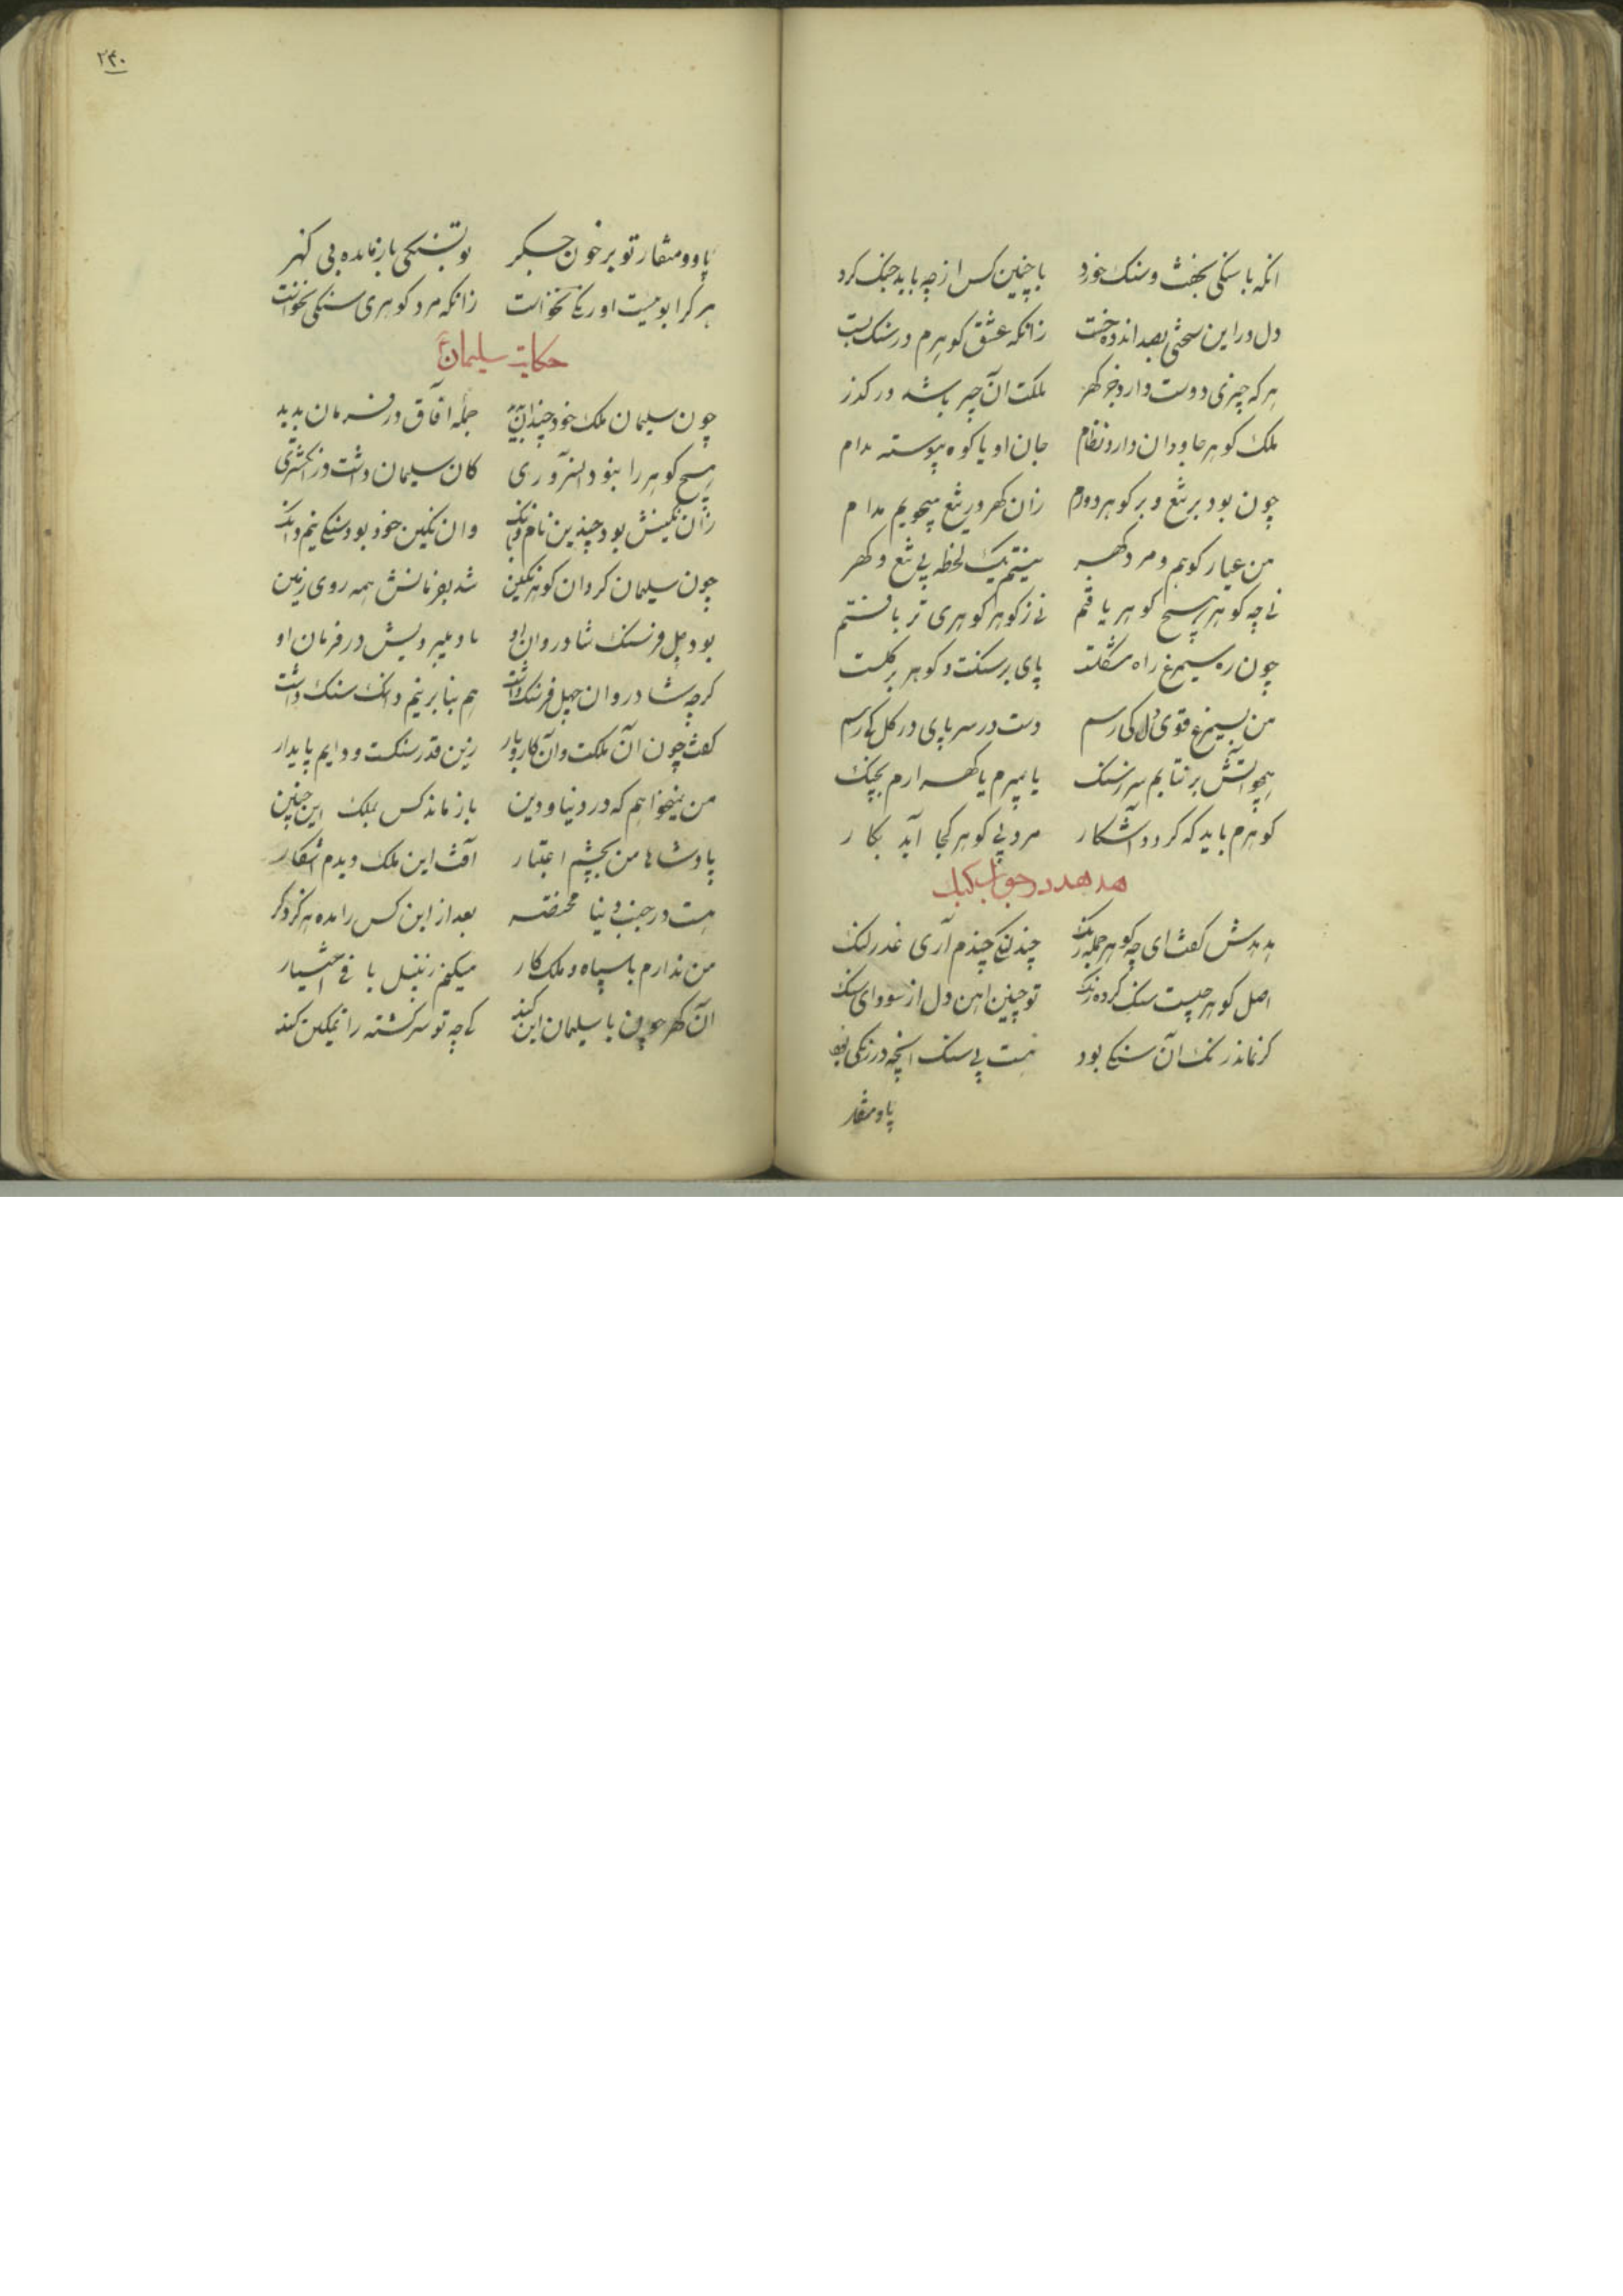 انکه با سنکی بخفت و سنک خورد با چنین کس از چه باید جنک کرد
دل در این سختی بصد اندوه خست زانکه عشق کوهرم در سنک بست
هر که چیزی دوست دارد جز کهر ملکت آن چیز باشد در کذر
ملک کوهر جاودان دارد نظام جان او با کوه پیوسته مدام
چون بود بر تیغ و بر کوهر دوام زان کهر در تیغ میجویم مدام
من عیار کوهم و مرد کهر نیستم یک لحظه بی تیغ و کهر
نی چه کوهر هیچ کوهر یافتم نی ز کوهر کوهری تر یافتم
چون ره سیمرغ راه مشکلست پای بر سنکست و کوهر بر کلست
من بسیمرغ قوی دل کی رسم دست در سر پای در کل کی رسم
همچو آتش بر نتابم سر ز سنک یا بمیرم یا کهر ارم بچنک
کوهرم باید که کردد آشکار مرد بی کوهر کجا آید بکار
هدهد در جواب کبک
هدهدش کفت ای چو کوهر جمله رنک چند لنکی چندم آری عذر لنک
اصل کوهر چیست سنک کرده رنک تو چنین اهن دل از سودای سنک
کر نماند رنک آن سنکی بود هست بی سنک انچه در رنکی بود
پا و منقار
پا و و منقار تو بر خون جکر تو بسنکی باز مانده بی کهر
هر کرا بوییست او رنکی نخواست زانکه مرد کوهری سنکی نخواست
حکایت سلیمان ع
چون سلیمان ملک خود چندان بدید جمله آفاق در فرمان بدید
هیچ کوهر را نبود السروری کان سلیمان داشت در انکشتری
زان نکینش بود چندین نام و بانک وان نکین خود بود سنکی نیم دانک
چون سلیمان کرد ان کوهر نکین شد بفرمانش همه روی زمین
بود چل فرسنک شادروان او باد میبردیش در فرمان او
کرچه شادروان چهل فرسنک داشت هم بنا بر نیم دانک سنک داشت
کفت چون آن ملکت و آن کار و بار زین قدر سنکست و دایم پایدار
من نمیخواهم که در دنیا و دین باز ماند کس بملک این چنین
پادشاها من بچشم اعتبار آفت این ملک دیدم آشکار
هست در جنب دنیا مختصر بعد از این کس را مده هرکز دکر
من ندارم با سپاه و ملک کار میکنم زنبیل بافی اختیار
آن کهر چون با سلیمان این کند کی چه تو سرکشته را تمکین کند
۲۴۰